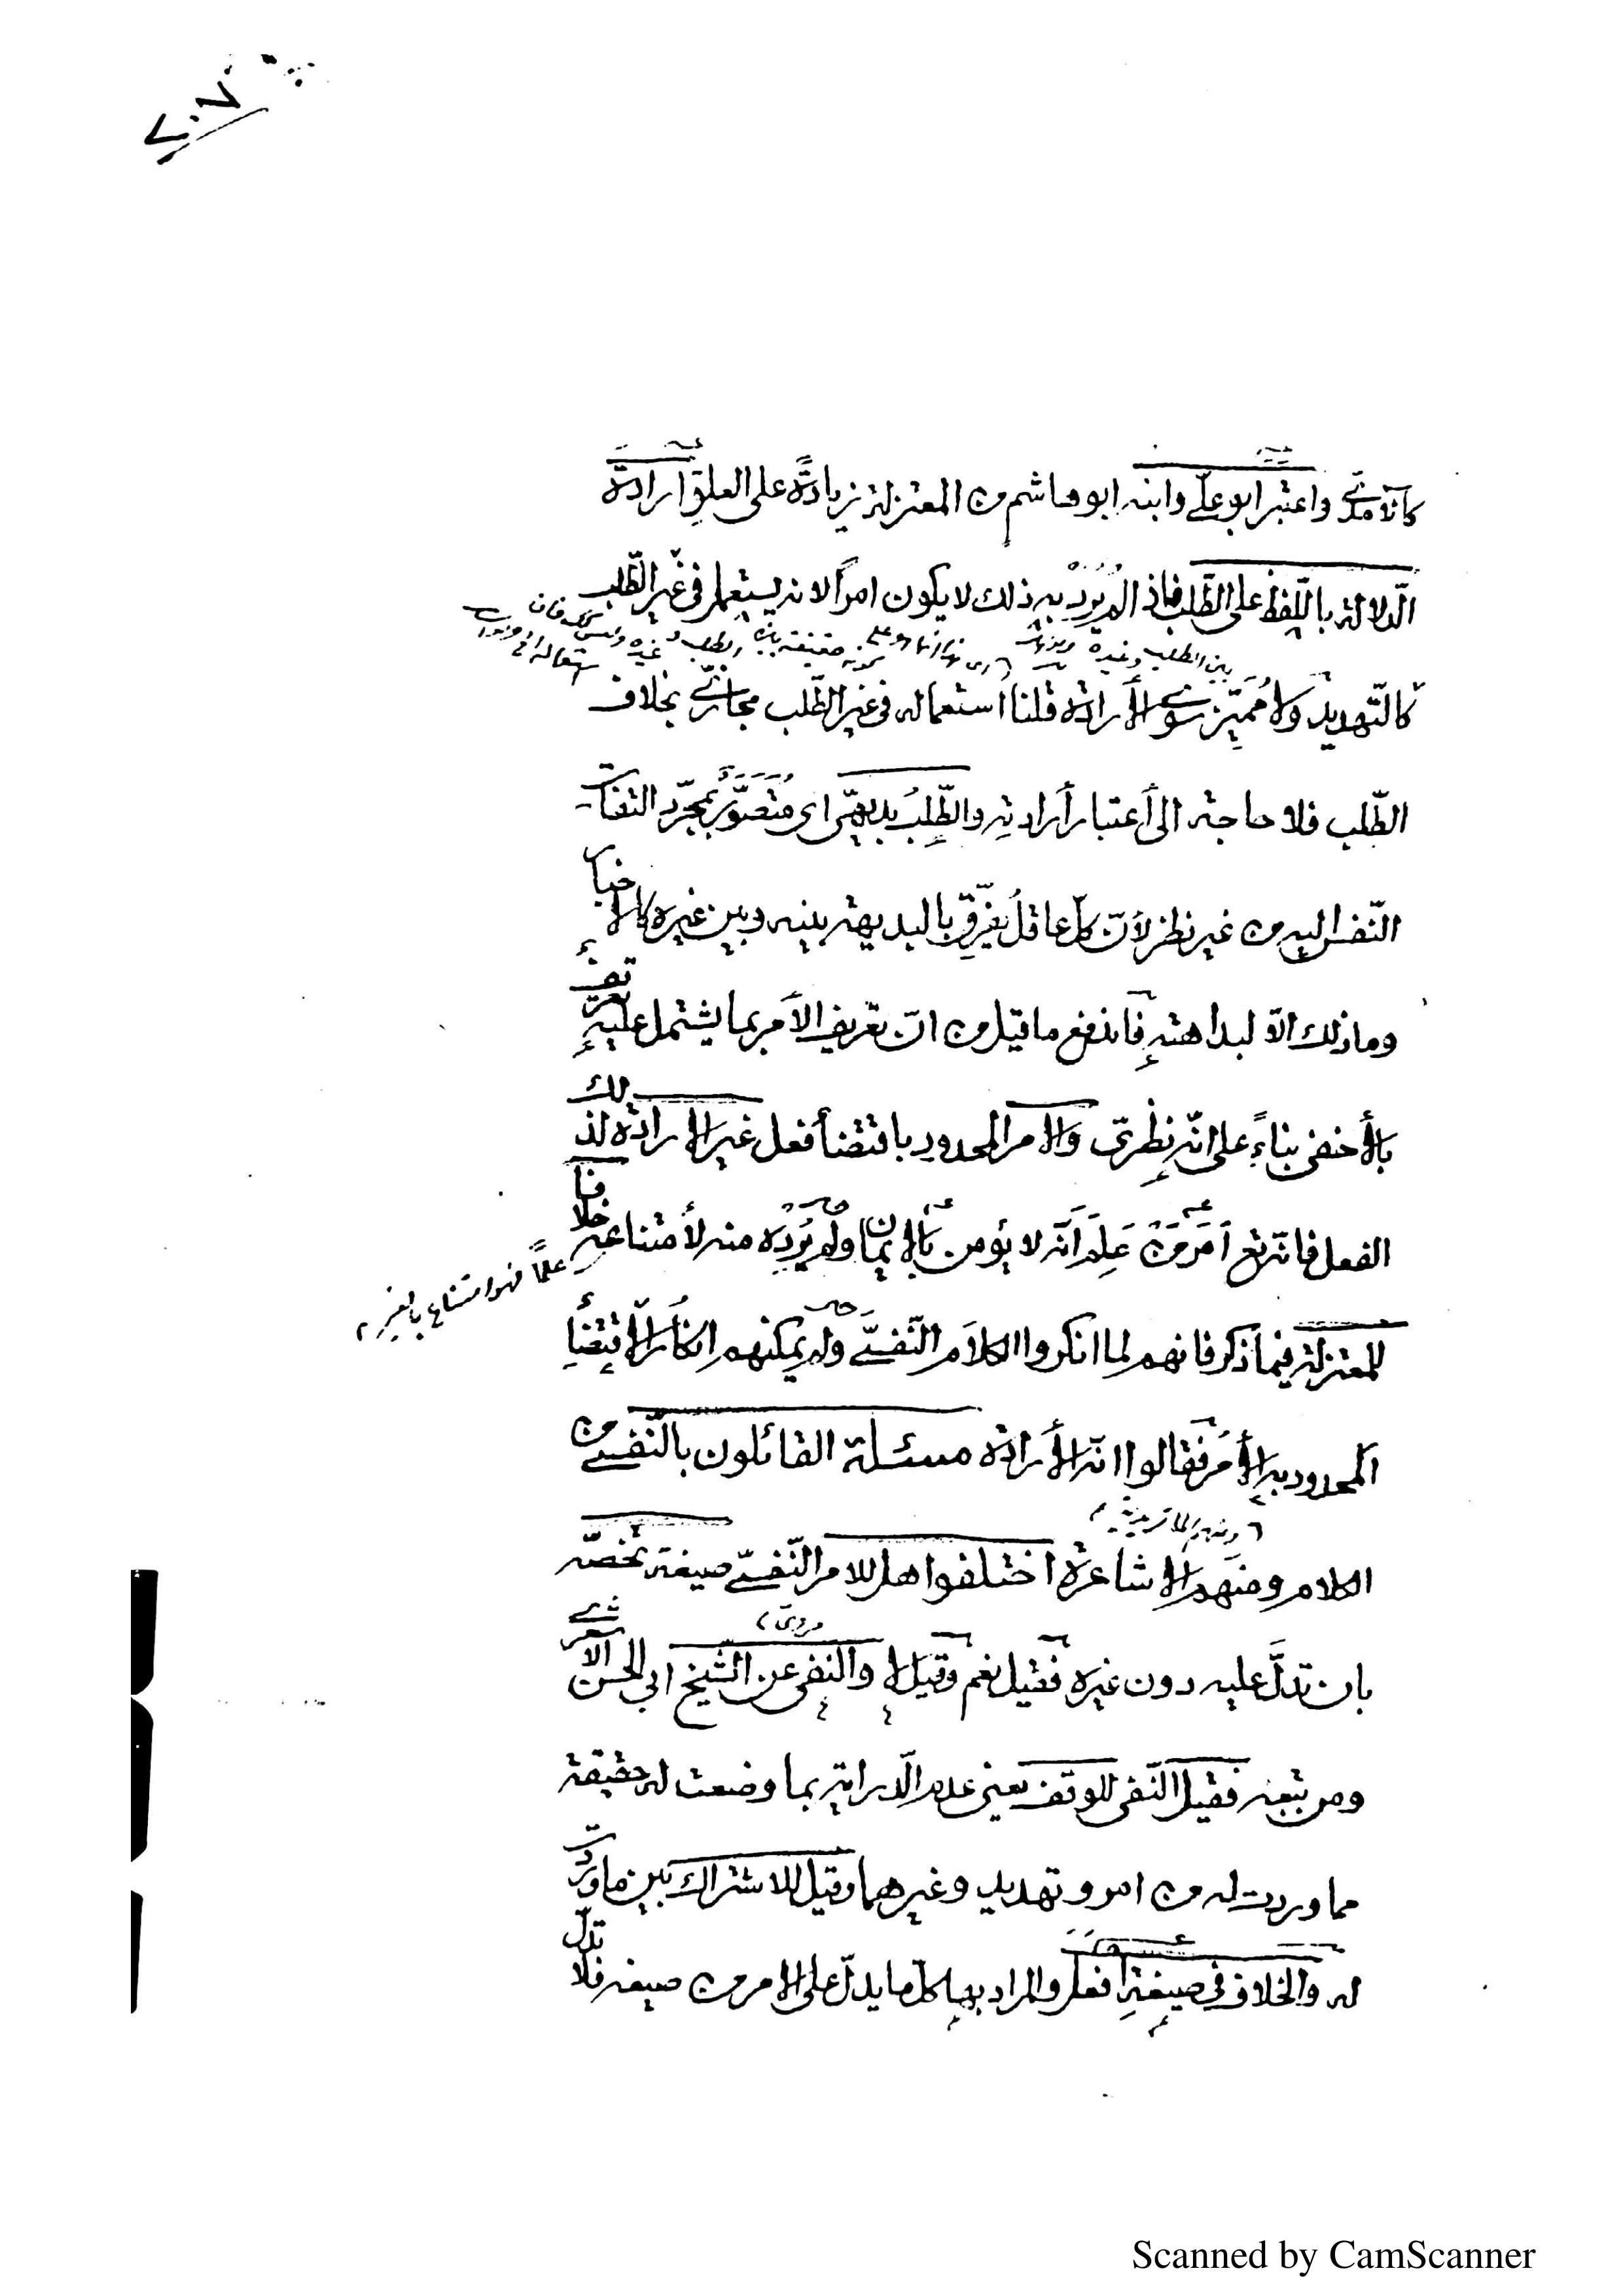 ٢٠٧
كالآمدي واعتبر ابو علي وابنه ابو هاشم من المعتزلة زيادةً على العلوِّ ارادة
الدّلالة باللّفظ على الطّلب فاذا لم يُرِدْ به ذلك لا يكون امراً لانه يستعمل في غير الطّلب
بين الطلب وغيره
كالتّهديد ولا مُميِّز سوى الأرادة قلنا استعماله في غير الطّلب مجازيّ بخلاف
الطّلب فلا حاجة الى أعتبار أرادته والطّلبُ بديهيّ اى مُتَصَوَّرٌ بمجرّد التفات
النّفس اليه من غير نظر لأنّ كلّ عاقل يفرّق بالبديهة بينه وبين غيره كالأخبار
وما ذلك الّا لبداهته فاندفع ما قيل من انّ تعريف الأمر بما يشتمل عليه تعريف
بالأخفى بناءً على انّه نظريّ والامر المحدود باقتضأ فعل غير الارادة لذلك
الفعل فانه تع اَمَرَ مَنْ عَلِمَ اَنّه لا يؤمن بالايمان ولم يُرِدْه منه لأمتناعه خلافا
علمًا فهو امتناع بالغير
للمعتزلة فيما ذكر فانهم لما انكروا الكلاَم النّفسيَّ ولم يمكنهم انكارُ الأقتضأ
المحدود به الأمرُ فقالوا انّه الأرادة مسئلة القائلون بالنّفسي من
ومنهم الماتريدية
الكلام ومنهم الاشاعرة اختلفوا هل للامر النّفسيّ صيغة تخصّه
بان تدلَّ عليه دون غيره فقيل نعم وقيل لا والنفى عن الشّيخ ابي الحسن الاشعري
ومن تبعه فقيل النّفى للوقف يعني عدم الدّراية بما وضعت له حقيقة
مما وردت له من امر وتهديد وغيرهما وقيل للاشتراك بين ما وردت
له والخلاف في صيغةِ افعل والمراد بها كلّ ما يدلّ على الامر من صيغه فلا تدلّ
Scanned by CamScanner